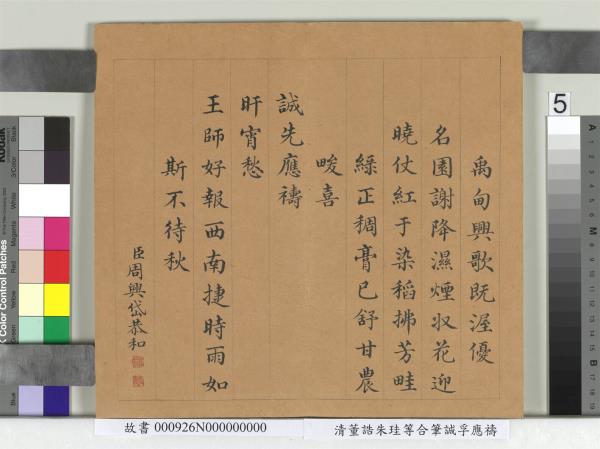 禹甸興歌既渥優
名園謝降濕煙收花迎
曉仗紅于染稻拂芳畦
綠正稠膏已舒甘農
畯喜
誠先應禱
旰宵愁
王師好報西南捷時雨如
斯不待秋
臣周興岱恭和
故書 000926N000000000
清董誥朱珪等合筆誠孚應禱
5
Kodak
Color Control Patches
Black
3/Color
White
Magenta
Red
Yellow
Green
Cyan
Blue
A
M
B